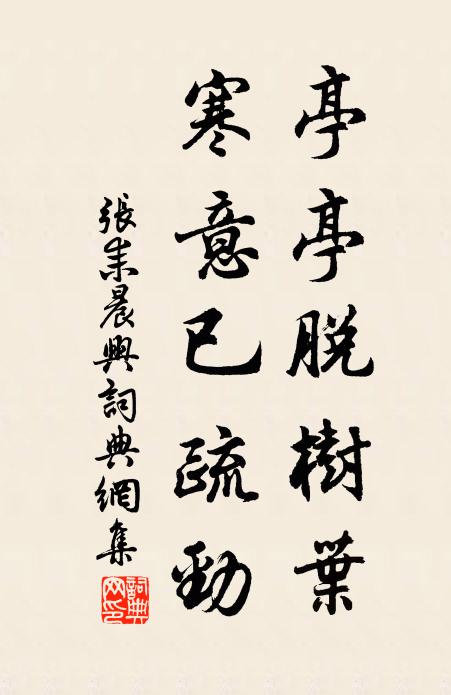 亭亭脱樹葉
寒意已疏勁
張耒晨興詞典網集
詞典网印